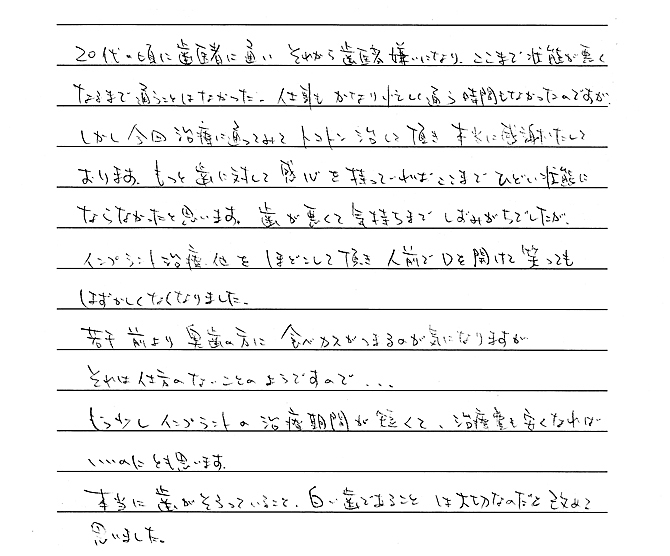 20代の頃に歯医者に通い それから歯医者嫌いになり、ここまで状態が悪く
なるまで通うことはなかった。仕事も かなり忙しく通う時間もなかったのですが
しかし今回 治療に通ってみて トコトン治して頂き 本当に感謝いたして
おります。もっと歯に対して 感心を持っていればここまで ひどい状態に
ならなかったと思います。歯が悪くて気持ちまで しずみがちでしたが、
インプラント治療 他を ほどこして頂き 人前で口を開けて 笑っても
はずかしくなくなりました。
若干 前より 奥歯の方に 食べカスがつまるのが気になりますが
それは仕方のないことのようですので...
もう少し インプラントの 治療期間が 短くて、治療費も安くなれば
いいのにとも思います。
本当に 歯がそろっていること、白い歯であること は大切なのだと改めて
思いました。